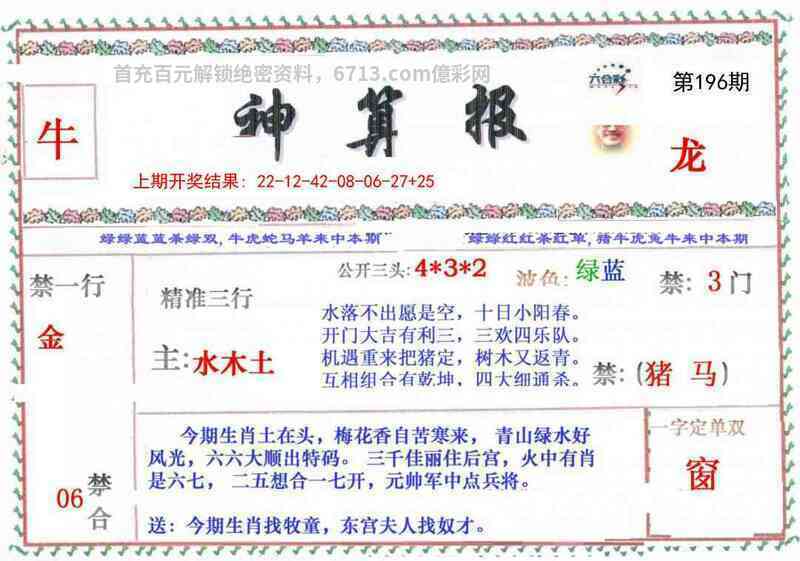 首充百元解锁绝密资料，6713.com億彩网
六合彩
第196期
牛
神算报
龙
上期开奖结果：22-12-42-08-06-27+25
绿绿蓝蓝杀绿双，牛虎蛇马羊来中本期
绿绿红红杀红单，猪牛虎兔牛来中本期
禁一行
金
精准三行
主:水木土
公开三头:4*3*2
波色:绿蓝
禁:3门
水落不出愿是空，十日小阳春。
开门大吉有利三，三欢四乐队。
机遇重来把猪定，树木又返青。
互相组合有乾坤，四大细通杀。
禁:(猪 马)
06
禁合
今期生肖土在头，梅花香自苦寒来， 青山绿水好
风光，六六大顺出特码。 三千佳丽住后宫，火中有肖
是六七， 二五想合一七开，元帅军中点兵将。
送：今期生肖找牧童，东宫夫人找奴才。
一字定单双
窗